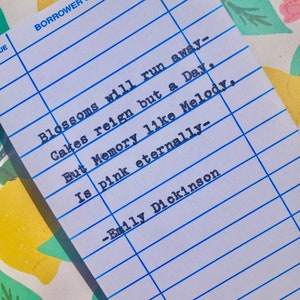 UE
BORROWER'S
Blossoms will run away—
Cakes reign but a Day,
But Memory like Melody,
Is pink eternally—
-Emily Dickinson